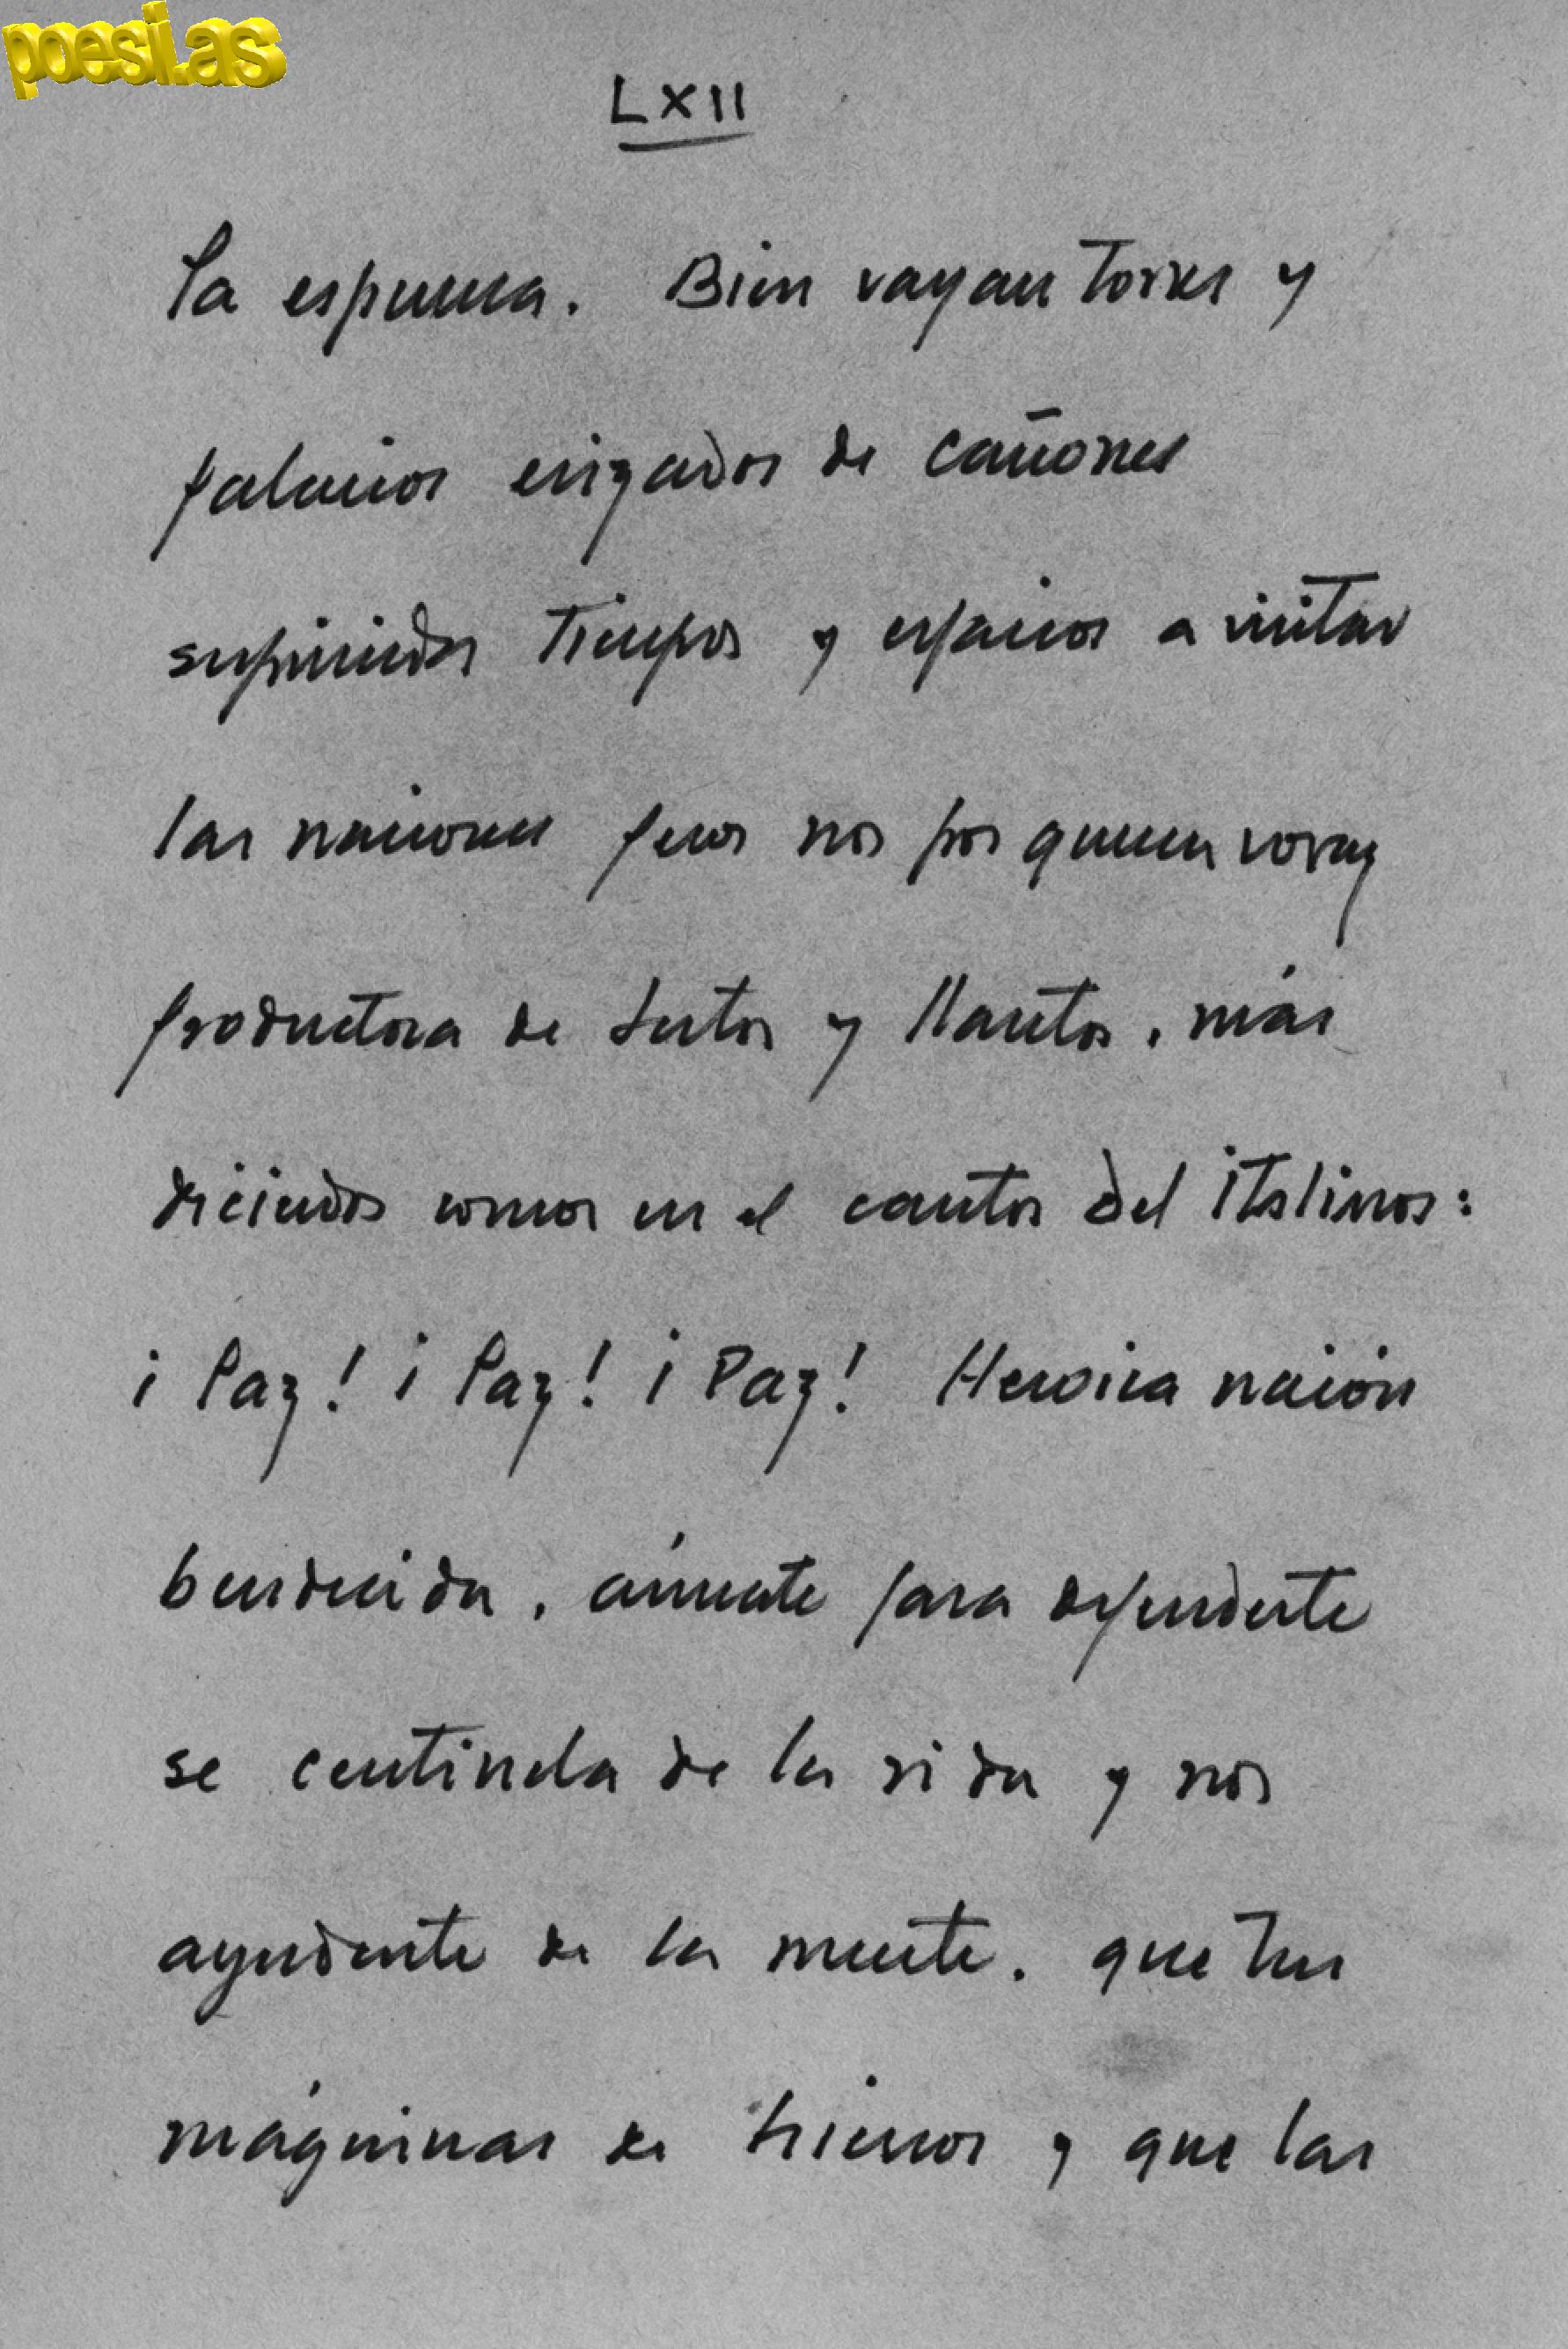 poesi.as
LXII
la espuma. Bien vayan torres y
palacios erizados de cañones
suprimiendo tiempos y espacios a visitar
las naciones pero no por guerra voraz
productora de luto y llanto, más
diciendo como en el canto del italino:
¡Paz! ¡Paz! ¡Paz! Heroica nación
bendecida, ármate para defenderte
se centinela de la vida y no
ayudante de la muerte. que tus
máquinas de hierro y que las